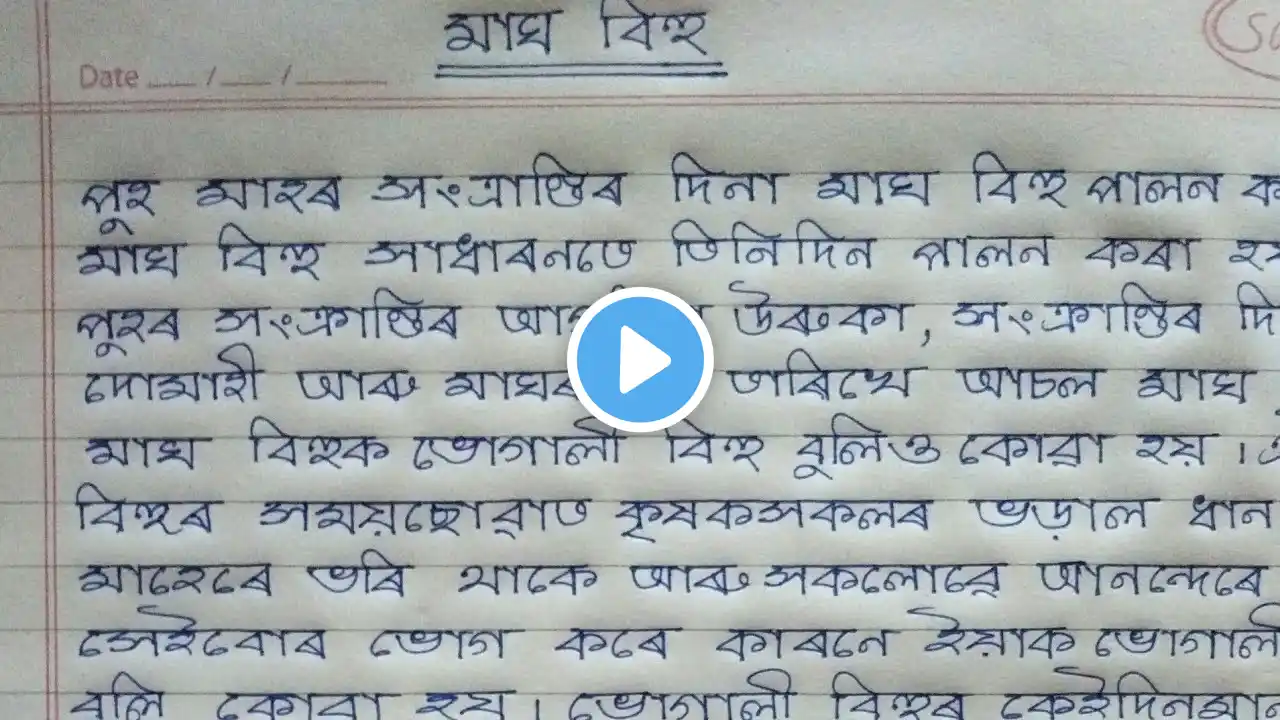 মাঘ বিহু
Date __/__/____
পুহ মাহৰ সংত্ৰাণ্ডিৰ দিনা মাঘ বিহু পালন
মাঘ বিহু সাধাৰনতে তিনিদিন পালন কৰা
পুহৰ সংক্ৰাণ্ডিৰ উৰুকা, সংক্ৰাণ্ডিৰ
দোমাহী আৰু মাঘৰ তাৰিখে আচল মাঘ
মাঘ বিহুক ভোগালী বিহু বুলিও কোৱা হয়।
বিহুৰ সময়ছোৱাত কৃষকসকলৰ ভড়াল ধান
মাহেৰে ভৰি থাকে আৰু সকলোৱে আনন্দেৰে
সেইবোৰ ভোগ কৰে কাৰনে ইয়াক ভোগালী
বুলি কোৱা হয়। ভোগালী বিহুৰ